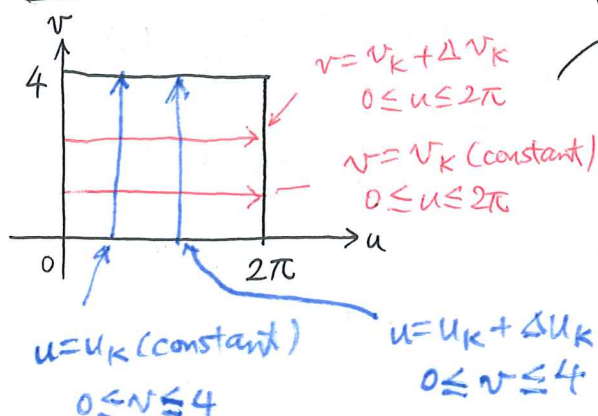 v
4
v = v_K + Δv_K
0 ≤ u ≤ 2π
v = v_K (constant)
0 ≤ u ≤ 2π
0
2π
u
u = u_K (constant)
0 ≤ v ≤ 4
u = u_K + Δu_K
0 ≤ v ≤ 4